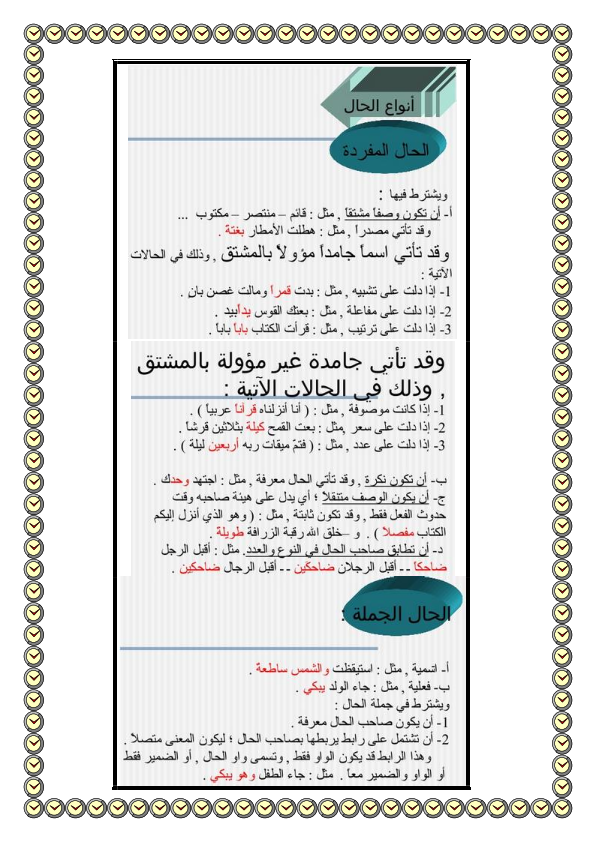 أنواع الحال
الحال المفردة
ويشترط فيها :
أ- أن تكون وصفاً مشتقاً , مثل : قائم – منتصر – مكتوب ...
وقد تأتي مصدراً , مثل : هطلت الأمطار بغتة .
وقد تأتي اسماً جامداً مؤولاً بالمشتق , وذلك في الحالات
الآتية :
1- إذا دلت على تشبيه , مثل : بدت قمراً ومالت غصن بانٍ .
2- إذا دلت على مفاعلة , مثل : بعتك القوس يداًبيد .
3- إذا دلت على ترتيب , مثل : قرأت الكتاب باباً باباً .
وقد تأتي جامدة غير مؤولة بالمشتق
, وذلك في الحالات الآتية :
1- إذا كانت موصوفة , مثل : ( أنا أنزلناه قرآناً عربياً ) .
2- إذا دلت على سعر ,مثل : بعت القمح كيلة بثلاثين قرشاً .
3- إذا دلت على عدد , مثل : ( فتمّ ميقات ربه أربعين ليلة ) .
ب- أن تكون نكرة , وقد تأتي الحال معرفة , مثل : اجتهد وحدك .
ج- أن يكون الوصف متنقلاً ؛ أي يدل على هيئة صاحبه وقت
حدوث الفعل فقط , وقد تكون ثابتة , مثل : ( وهو الذي أنزل إليكم
الكتاب مفصلاً ) . و –خلق الله رقبة الزرافة طويلة .
د- أن تطابق صاحب الحال في النوع والعدد. مثل : أقبل الرجل
ضاحكاً -- أقبل الرجلان ضاحكَين -- أقبل الرجال ضاحكين .
الحال الجملة :
أ- اسمية , مثل : استيقظت والشمس ساطعة .
ب- فعلية , مثل : جاء الولد يبكي .
ويشترط في جملة الحال :
1- أن يكون صاحب الحال معرفة .
2- أن تشتمل على رابط يربطها بصاحب الحال ؛ ليكون المعنى متصلاً .
وهذا الرابط قد يكون الواو فقط , وتسمى واو الحال , أو الضمير فقط
أو الواو والضمير معاً . مثل : جاء الطفل وهو يبكي .